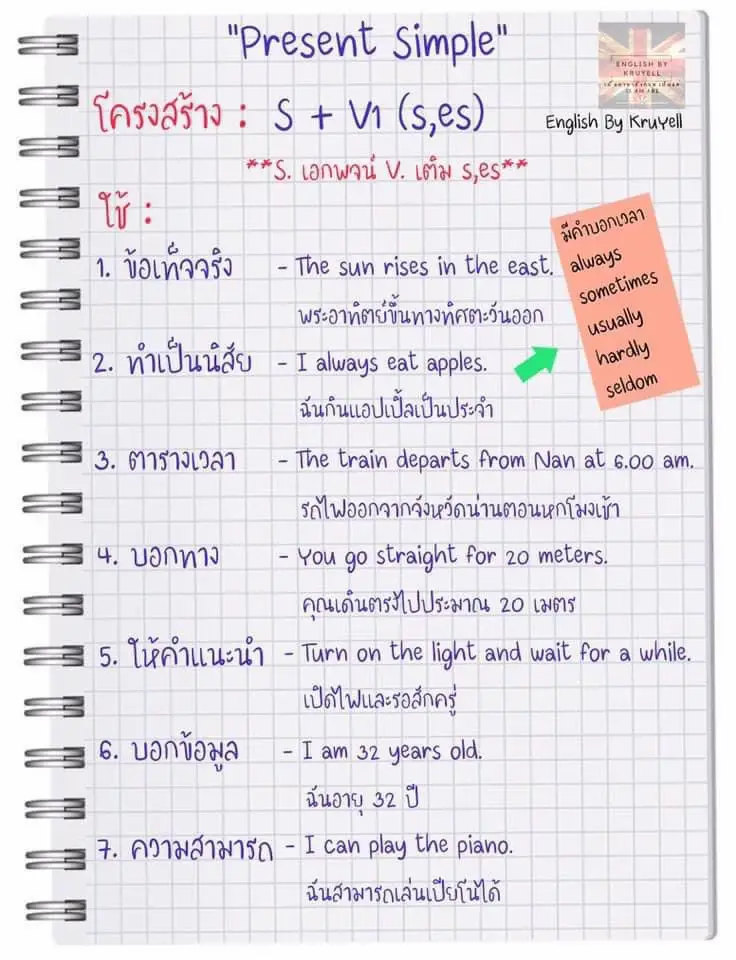 "Present Simple"
ENGLISH BY
KRUYELL
English By KruYell
โครงสร้าง : S + V1 (s,es)
**S. เอกพจน์ V. เติม s,es**
ใช้ :
มีคำบอกเวลา
always
sometimes
usually
hardly
seldom
1. ข้อเท็จจริง - The sun rises in the east.
พระอาทิตย์ขึ้นทางทิศตะวันออก
2. ทำเป็นนิสัย - I always eat apples.
ฉันกินแอปเปิ้ลเป็นประจำ
3. ตารางเวลา - The train departs from Nan at 6.00 am.
รถไฟออกจากจังหวัดน่านตอนหกโมงเช้า
4. บอกทาง - You go straight for 20 meters.
คุณเดินตรงไปประมาณ 20 เมตร
5. ให้คำแนะนำ - Turn on the light and wait for a while.
เปิดไฟและรอสักครู่
6. บอกข้อมูล - I am 32 years old.
ฉันอายุ 32 ปี
7. ความสามารถ - I can play the piano.
ฉันสามารถเล่นเปียโนได้